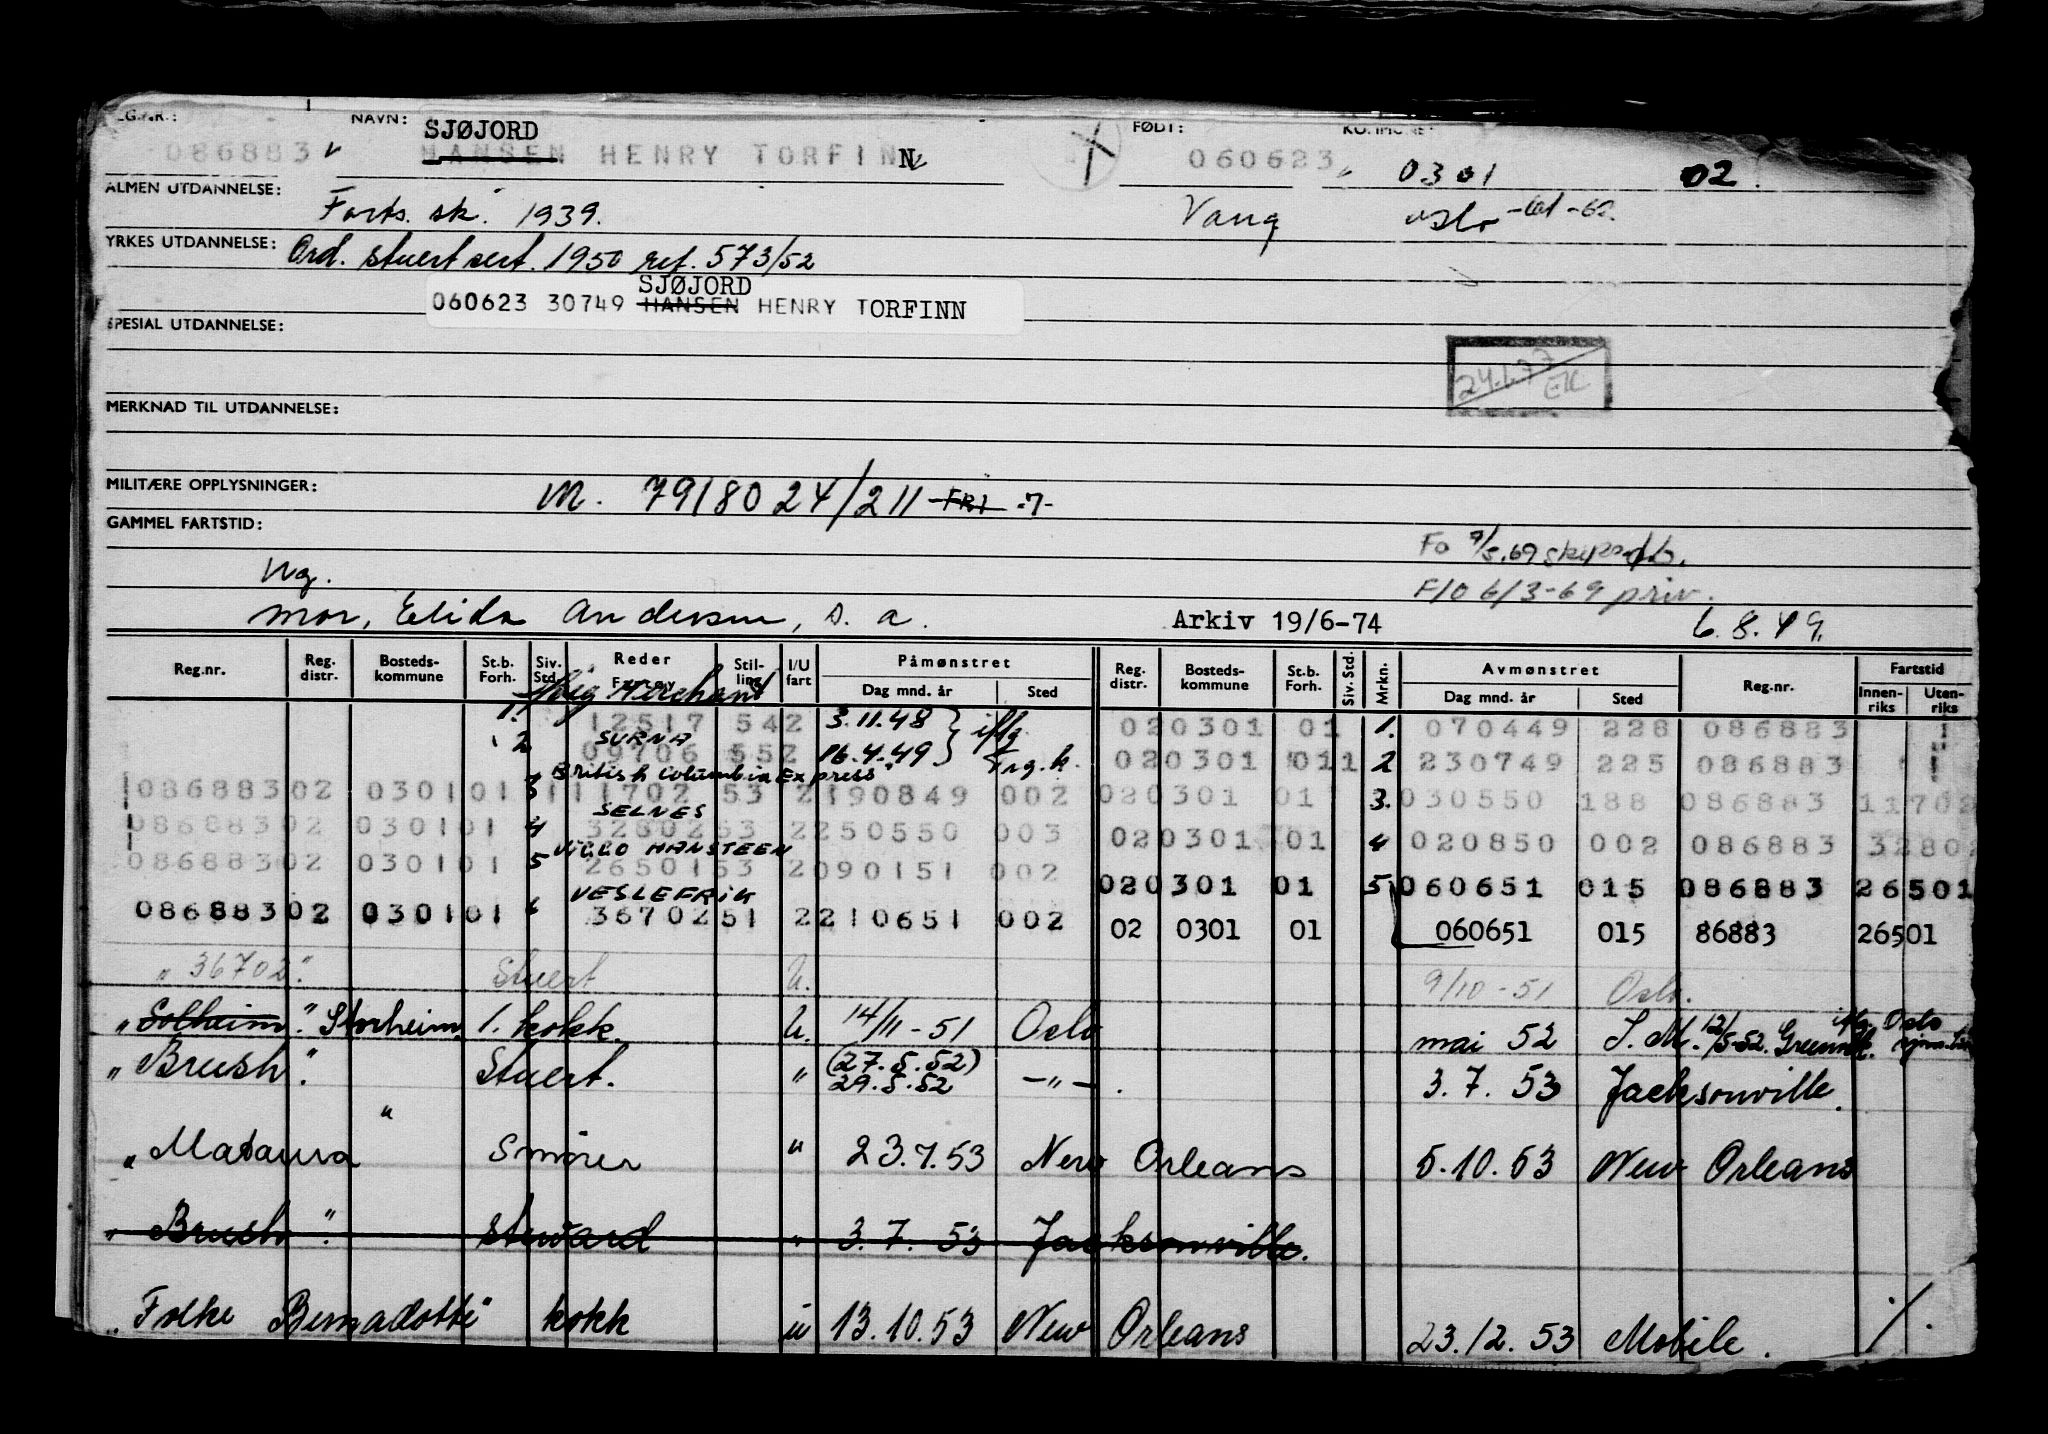 NAVN: SJØJORD FØDT:
086883 HANSEN HENRY TORFINN 060623 0301 02.
ALMEN UTDANNELSE: Forts. sk. 1939. Vang Oslo
YRKES UTDANNELSE: Ord. stuert sert. 1950 ref. 573/52
SJØJORD
060623 30749 HANSEN HENRY TORFINN
SPESIAL UTDANNELSE:
24.1.77 EK
MERKNAD TIL UTDANNELSE:
MILITÆRE OPPLYSNINGER: M. 7918024/211 FRI -7-
GAMMEL FARTSTID:
Ug. F10 6/3-69 priv.
mor, Elida Andersen, s. a. Arkiv 19/6-74 6.8.49.
Reg.nr. Reg. distr. Bosteds-kommune St.b. Forh. Siv. Std. Reder Fartøy Stil-ling I/U fart Påmønstret Dag mnd. år Sted Reg. distr. Bosteds-kommune St.b. Forh. Siv. Std. Mrkn. Avmønstret Dag mnd. år Sted Reg.nr. Fartstid Innen-riks Uten-riks
1. 12517 542 3.11.48 020301 01 1. 070449 228 086883
2 SURNA 09706 552 16.4.49 020301 011 2 230749 225 086883
British Columbia Express
08688302 030101 3 111702 53 2190849 002 020301 01 3. 030550 188 086883 11702
SELNES
08688302 030101 4 3280253 2250550 003 020301 01 4 020850 002 086883 32802
VIGGO HANSTEEN
08688302 030101 5 2650153 2090151 002 020301 01 5 060651 015 086883 26501
VESLEFRIK
08688302 030101 6 3670251 2210651 002 02 0301 01 060651 015 86883 26501
" 36702 " Stuert U. 9/10-51 Oslo.
" Solheim " Storheim 1. kokk. U. 14/11-51 Oslo mai 52 S.M. 12/5-52.
" Brush " Stuert. " (27.5.52) 29.5.52 -"-. 3.7.53 Jacksonville.
" Mataura " Smører " 23.7.53 New Orleans 5.10.53 New Orleans
" Brush " steward " 3.7.53 Jacksonville.
" Folke Bernadotte " kokk u 13.10.53 New Orleans 23.12.53 Mobile.